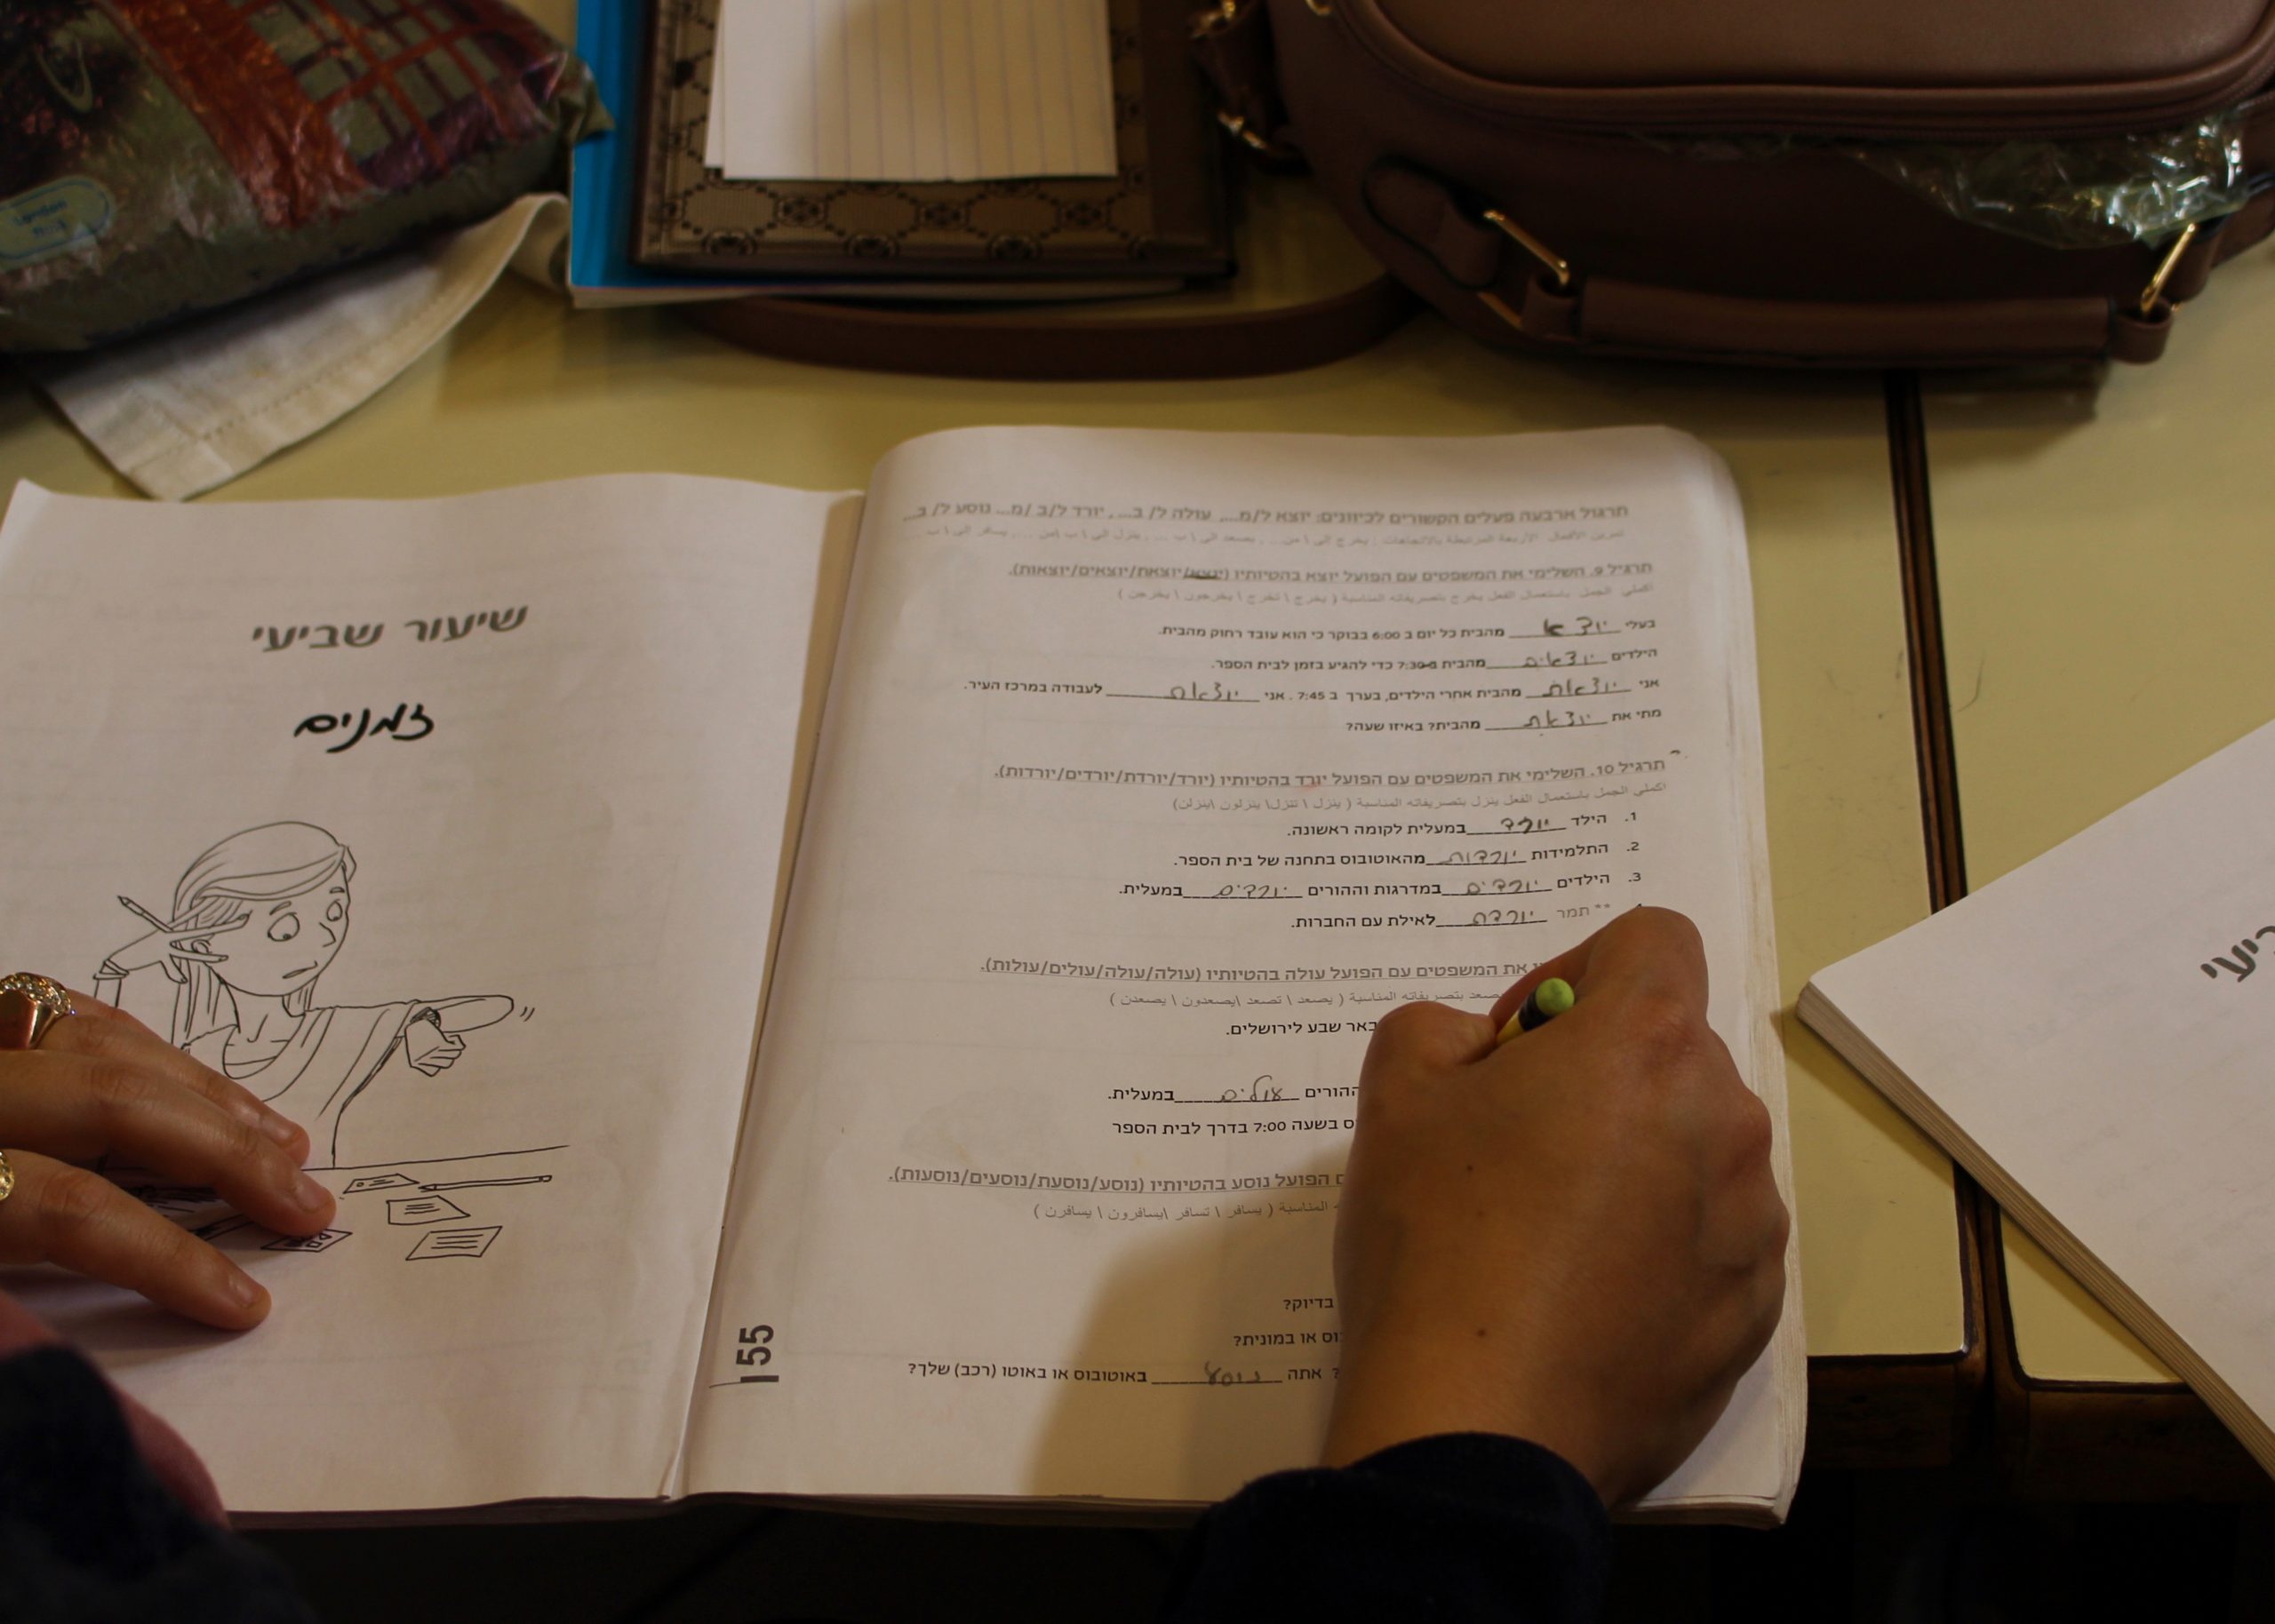 שיעור שביעי
זמנים
תרגול ארבעה פעלים הקשורים לכיוונים: יוצא ל/מ..., עולה ל/ ב... , יורד ל/ב /מ... נוסע ל/ ב...
تمرين الأفعال الأربعة المرتبطة بالاتجاهات : يخرج إلى \ من... , يصعد إلى \ ب ... , ينزل إلى \ ب \من ... , يسافر إلى \ ب ...
תרגיל 9. השלימי את המשפטים עם הפועל יוצא בהטיותיו (יוצא/יוצאת/יוצאים/יוצאות).
اكملي الجمل باستعمال الفعل يخرج بتصريفاته المناسبة ( يخرج \ تخرج \ يخرجون \ يخرجن )
בעלי יוצא מהבית כל יום ב 6:00 בבוקר כי הוא עובד רחוק מהבית.
הילדים יוצאים מהבית ב 7:30 כדי להגיע בזמן לבית הספר.
אני יוצאת מהבית אחרי הילדים, בערך ב 7:45 . אני יוצאת לעבודה במרכז העיר.
מתי את יוצאת מהבית? באיזו שעה?
תרגיל 10. השלימי את המשפטים עם הפועל יורד בהטיותיו (יורד/יורדת/יורדים/יורדות).
اكملي الجمل باستعمال الفعل ينزل بتصريفاته المناسبة ( ينزل \ تنزل\ ينزلون \ينزلن)
1. הילד יורד במעלית לקומה ראשונה.
2. התלמידות יורדות מהאוטובוס בתחנה של בית הספר.
3. הילדים יורדים במדרגות וההורים יורדים במעלית.
** תמר יורדת לאילת עם החברות.
את המשפטים עם הפועל עולה בהטיותיו (עולה/עולה/עולים/עולות).
يصعد بتصريفاته المناسبة ( يصعد \ تصعد \يصعدون \ يصعدن )
באר שבע לירושלים.
ההורים עולים במעלית.
בשעה 7:00 בדרך לבית הספר
הפועל נוסע בהטיותיו (נוסע/נוסעת/נוסעים/נוסעות).
المناسبة ( يسافر \ تسافر \يسافرون \ يسافرن )
בדיוק?
או במונית?
? אתה נוסע באוטובוס או באוטו (רכב) שלך?
55